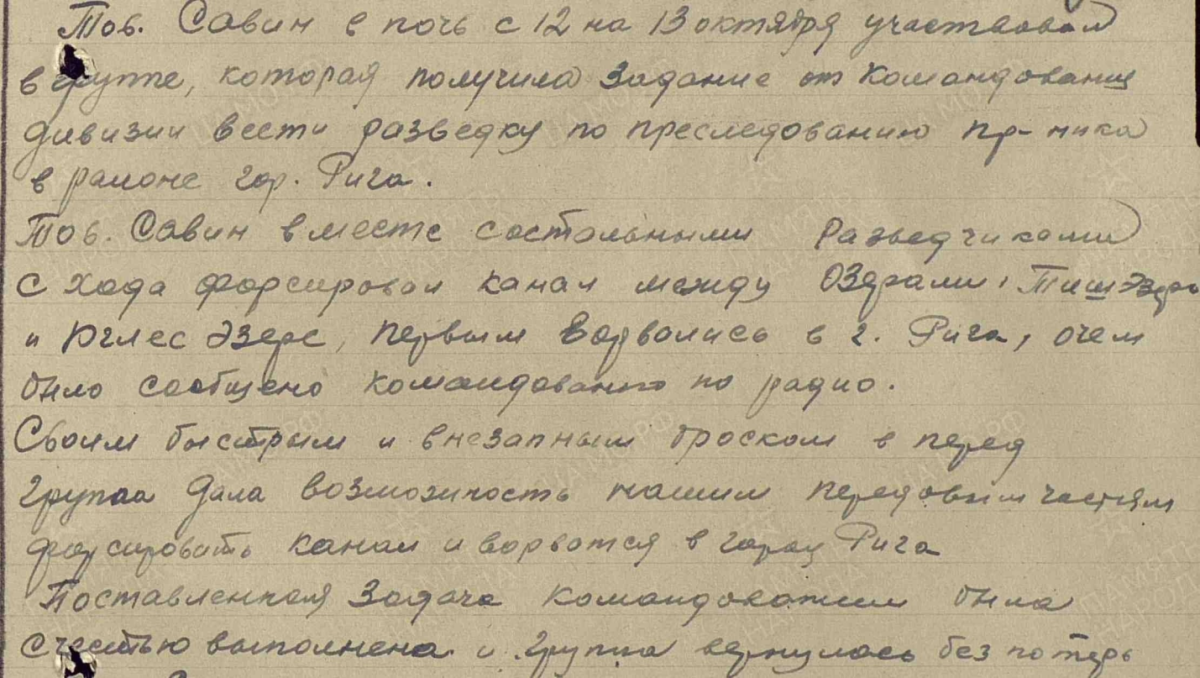 Тов. Савин в ночь с 12 на 13 октября участвовал
в группе, которая получила задание от командования
дивизии вести разведку по преследованию пр-ника
в районе гор. Рига.
Тов. Савин вместе состальными разведчиками
с хода форсировал канал между Озерами: Тиш Эзерс
и Юглес Эзерс, первым ворвались в г. Рига, очем
было сообщено командованию по радио.
Своим быстрым и внезапным броском в перед
группа дала возможность нашим передовым частям
форсировать канал и ворватся в город Рига
Поставленная задача командованием была
счестью выполнена и группа вернулась без потерь